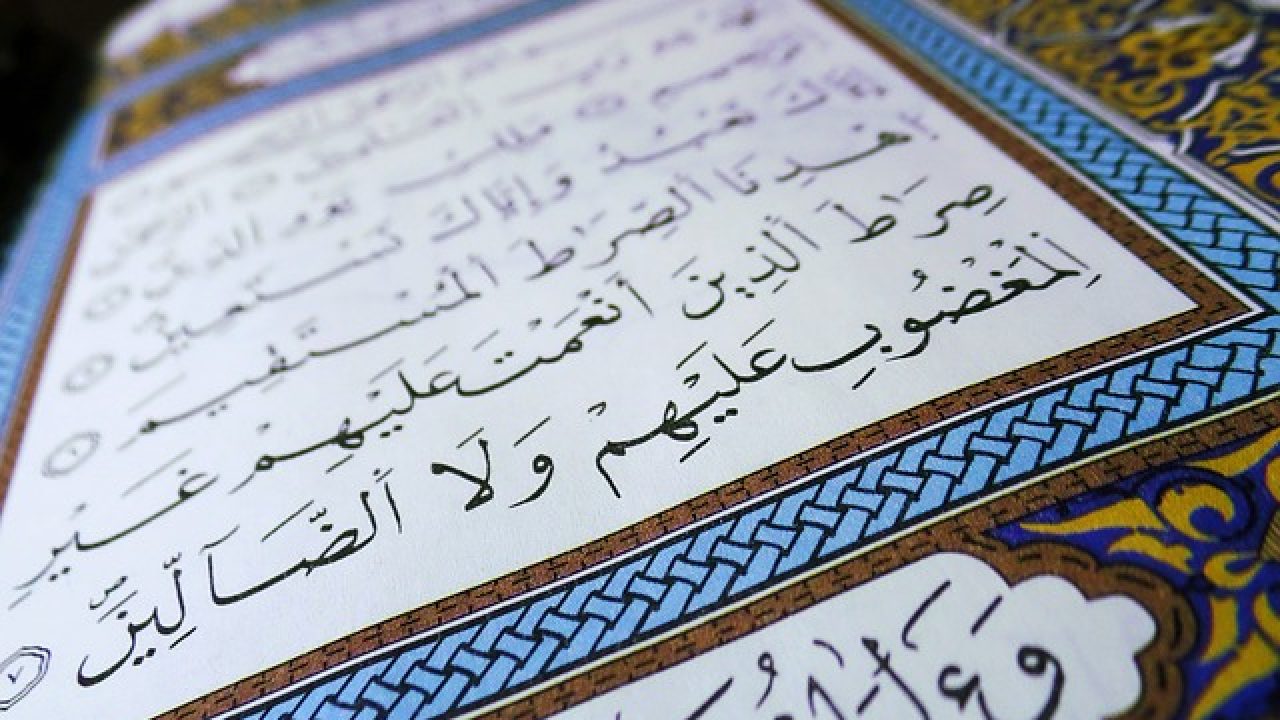 ٱلْعَٰلَمِينَ ٱلرَّحْمَٰنِ
ٱلرَّحِيمِ مَٰلِكِ يَوْمِ ٱلدِّينِ
إِيَّاكَ نَعْبُدُ وَإِيَّاكَ نَسْتَعِينُ ٥
ٱهْدِنَا ٱلصِّرَٰطَ ٱلْمُسْتَقِيمَ ٦
صِرَٰطَ ٱلَّذِينَ أَنْعَمْتَ عَلَيْهِمْ غَيْرِ
ٱلْمَغْضُوبِ عَلَيْهِمْ وَلَا ٱلضَّآلِّينَ ٧